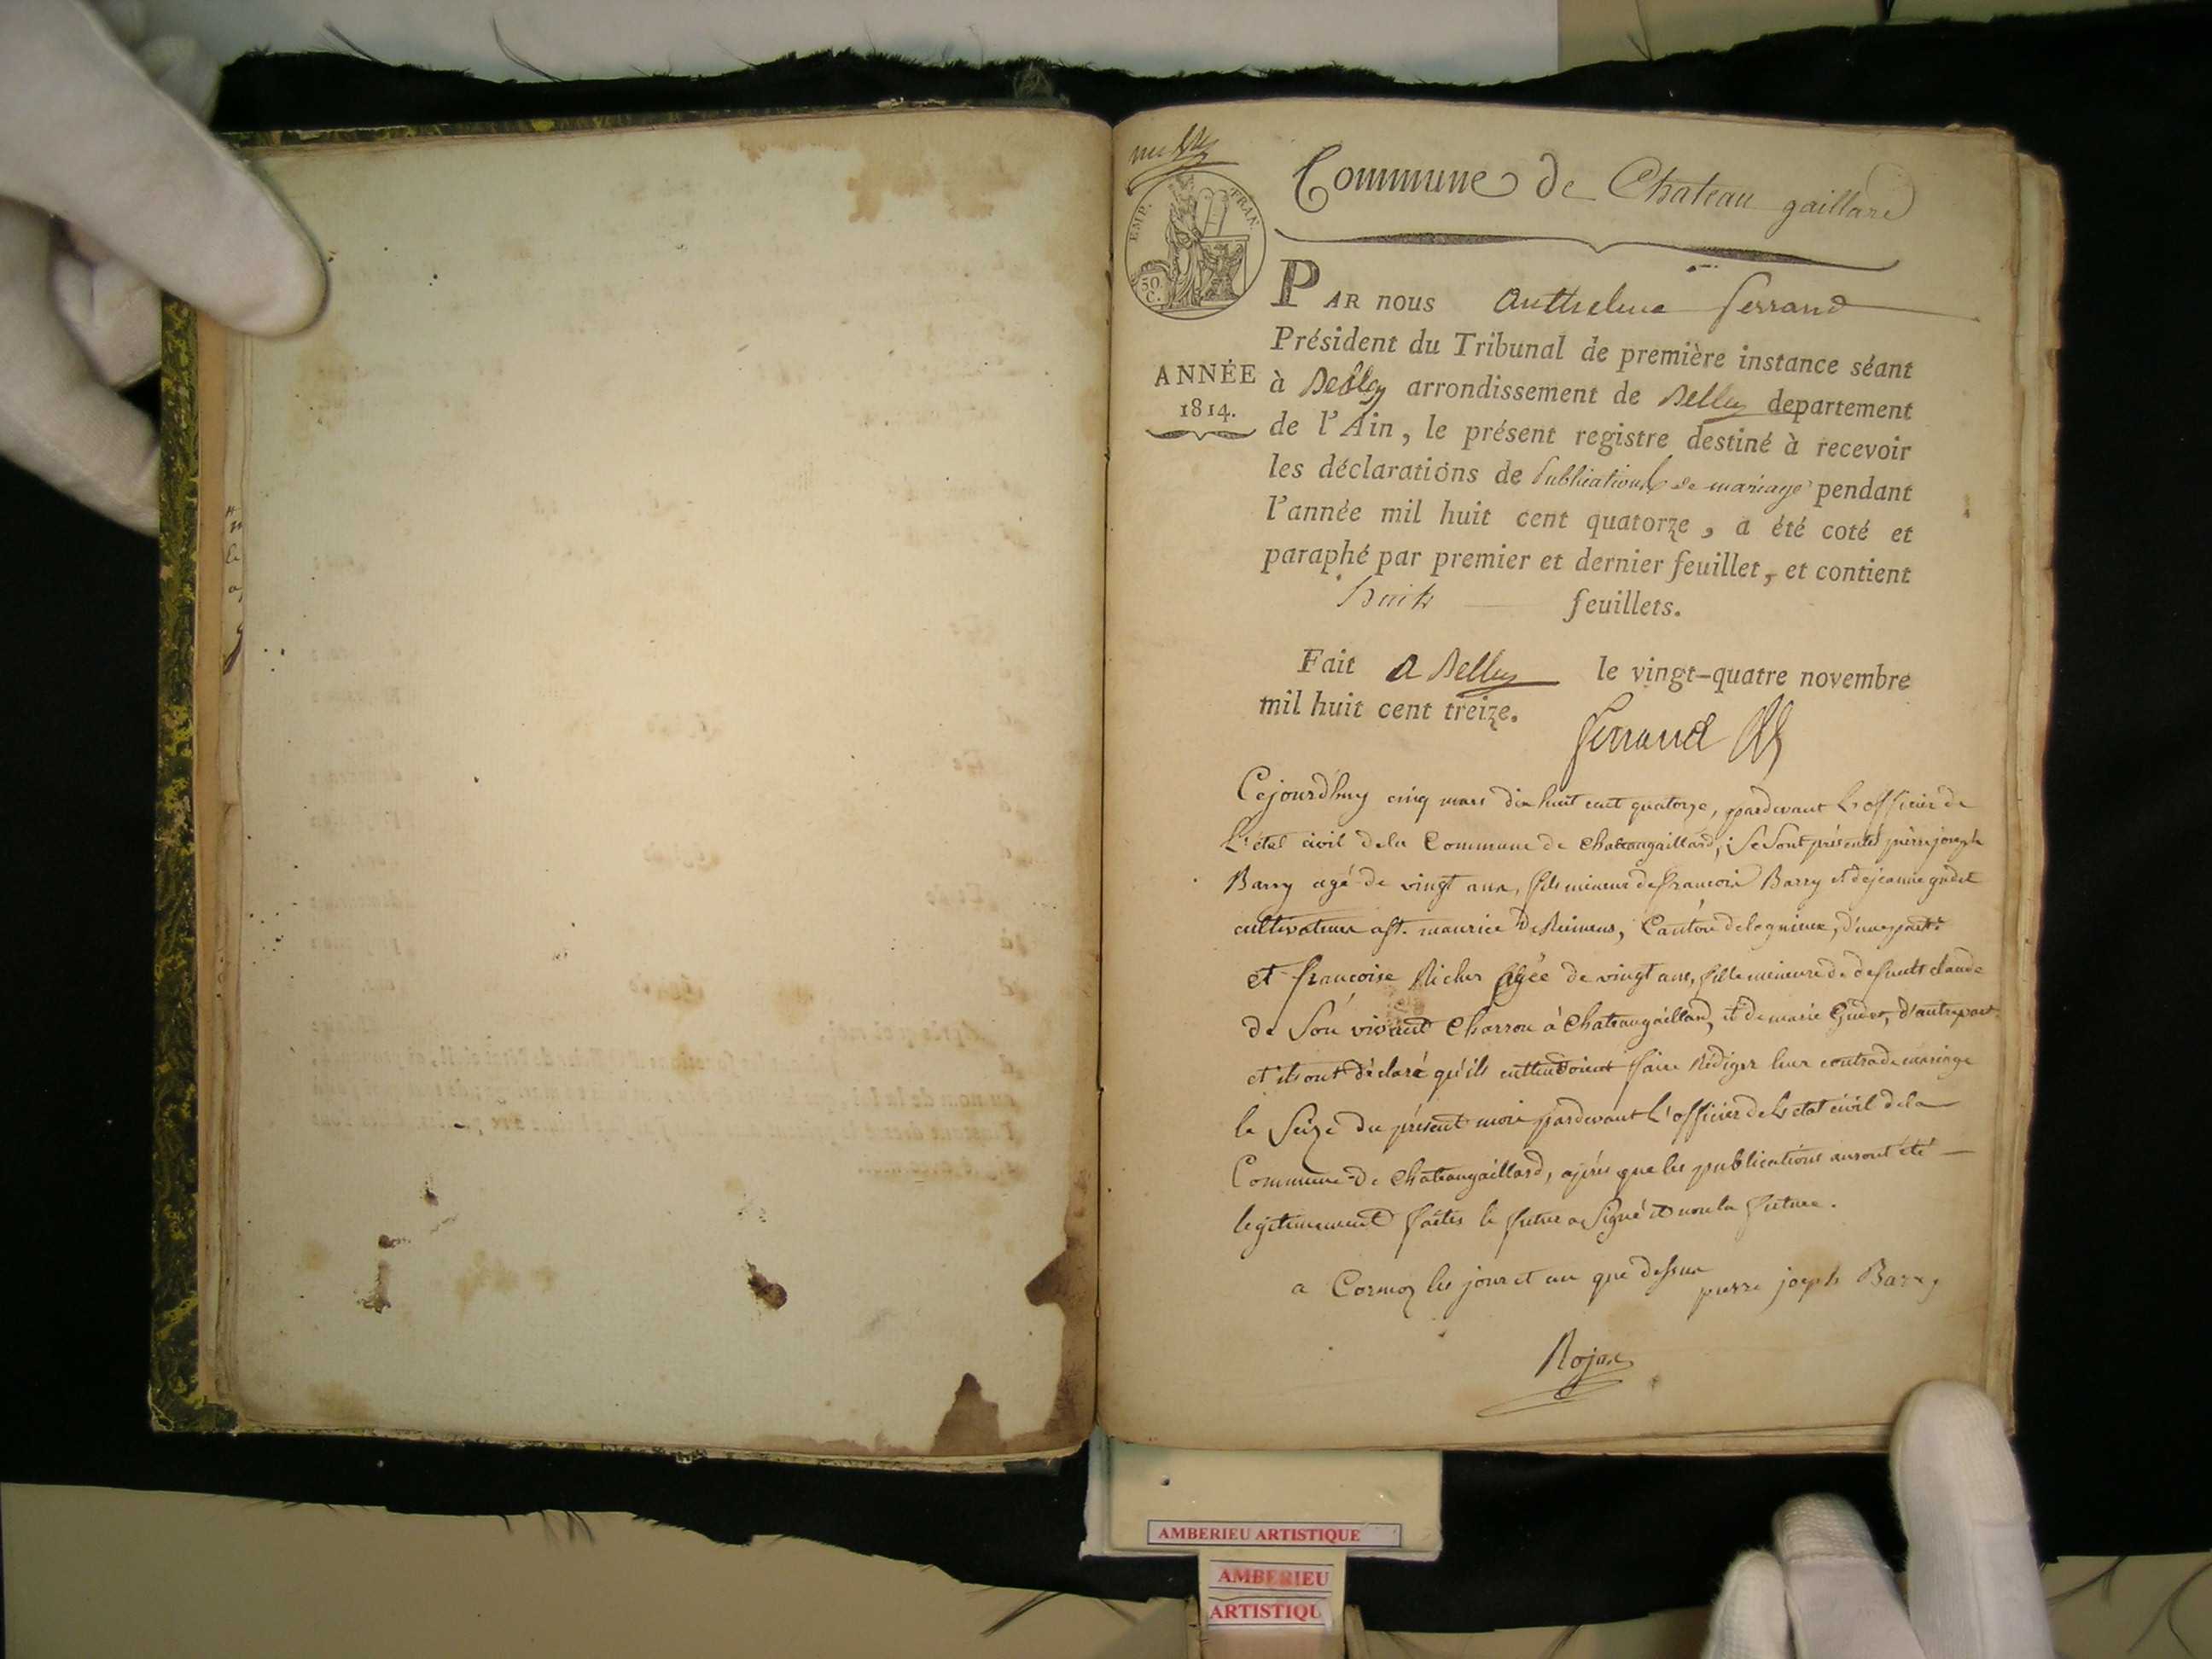 Commune de Chateau gaillard
EMP. FRAN.
50 C.
PAR nous Anthelme ferrand
Président du Tribunal de première instance séant
ANNÉE
1814.
à Belley arrondissement de Belley departement
de l'Ain, le présent registre destiné à recevoir
les déclarations de Publications de mariage pendant
l'année mil huit cent quatorze, a été coté et
paraphé par premier et dernier feuillet, et contient
huit feuillets.
Fait a Belley le vingt-quatre novembre
mil huit cent treize.
ferrand
Cejourd'huy cinq mars dix huit cent quatorze, pardevant L'officier de
L'état civil dela Commune de Chateaugaillard, Se Sont présentés pierre joseph
Barry agé de vingt ans, fils mineur de francois Barry et de jeanne
cultivateur a st. maurice De Remens, Canton de lagnieux, d'une part
et francoise Richer agée de vingt ans, fille mineure de defunt claude
de Son vivant Charron à Chateaugaillard, et de marie d'autre part
et ils ont déclaré qu'ils entendoient faire Rédiger leur contra de mariage
le Seize du présent mois pardevant L'officier de L'etat civil dela
Commune de Chateaugaillard, après que les publications auront été
legitimement faites le futur a Signé et non la future.
a Cormoz les jour et an que dessus
pierre joseph Barry
AMBERIEU ARTISTIQUE
AMBERIEU
ARTISTIQU